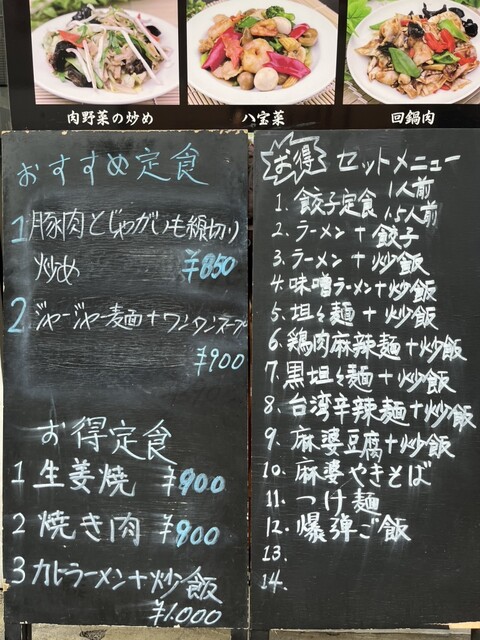 肉野菜の炒め
八宝菜
回鍋肉
おすすめ定食
1 豚肉とじゃがいも線切り
炒め ¥850
2 ジャージャー麦面+ワンタンスープ
¥900
お得定食
1 生姜焼 ¥900
2 焼き肉 ¥900
3 カトラーメン+炒飯
¥1.000
お得 セットメニュー
1. 餃子定食 1人前
1.5人前
2. ラーメン+餃子
3. ラーメン+炒飯
4. 味噌ラーメン+炒飯
5. 坦々麺+炒飯
6. 鶏肉麻辣麺+炒飯
7. 黒坦々麺+炒飯
8. 台湾辛辣麺+炒飯
9. 麻婆豆腐+炒飯
10. 麻婆やきそば
11. つけ麺
12. 爆弾ご飯
13.
14.